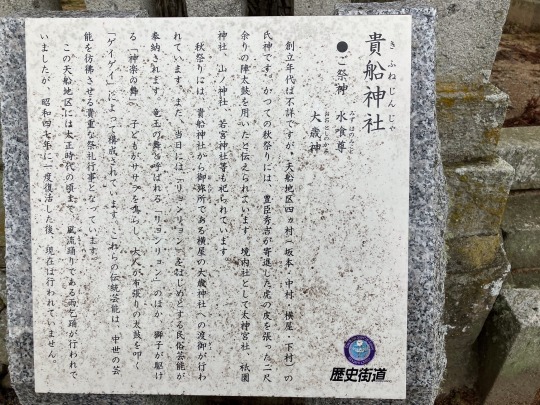 貴船神社
きふねじんじゃ
●ご祭神 水喰尊
みずはのみこと
大歳神
おおとしのかみ
創立年代は不詳ですが、天船地区四ヵ村(坂本・中村・横屋・下村)の
氏神です。かつての秋祭りには、豊臣秀吉が寄進した虎の皮を張った二尺
余りの陣太鼓を用いたと伝えられています。境内社として大神宮社、祇園
神社、山ノ神社、若宮神社等も祀られています。
秋祭りには、貴船神社から御旅所である横屋の大歳神社への渡御が行わ
れています。また、当日には「リョンリョン」をはじめとする民俗芸能が
奉納されます。竜王の舞と呼ばれる「リョンリョン」のほか、獅子が駆け
る「神楽の舞」、子どもがササラを鳴らし、大人が布張りの太鼓を叩く
「ゲイゲイ」によって構成されています。これらの伝統芸能は、中世の芸
能を彷彿させる貴重な祭礼行事となっています。
この天船地区には大正時代の頃まで、風流踊りである雨乞踊が行われて
いましたが、昭和四七年に一度復活した後、現在は行われていません。
歴史街道